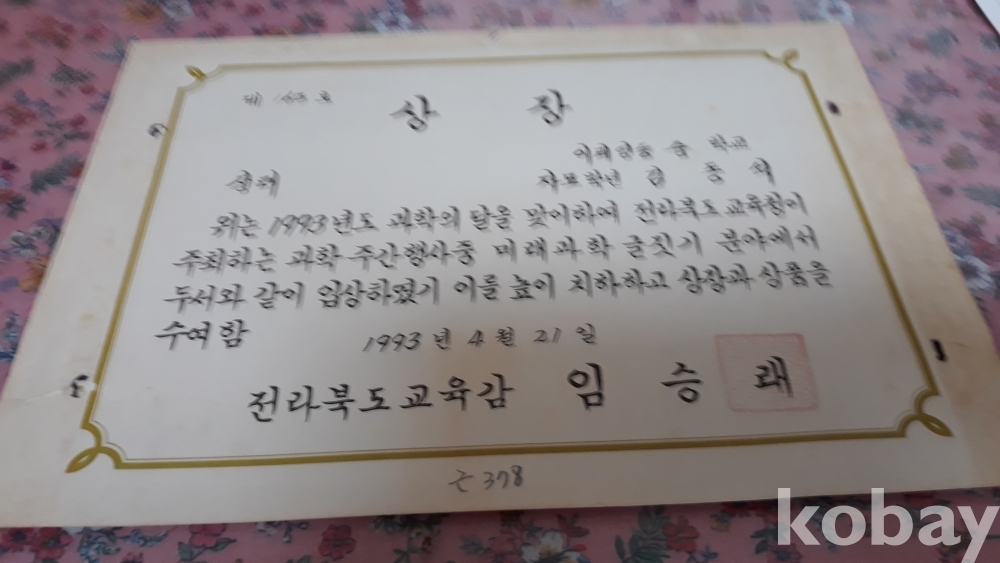 제 호
상 장
학교
학년 김 동 식
위는 1993년도 과학의 달을 맞이하여 전라북도교육청이
주최하는 과학 주간행사중 미래과학 글짓기 분야에서
두서와 같이 입상하였기 이를 높이 치하하고 상장과 상품을
수여함
1993년 4월 21일
전라북도교육감 임 승 래
378
kobay